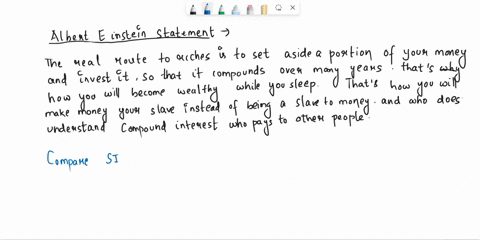 Albert Einstein statement →
The real route to riches is to set aside a portion of your money
and invest it, so that it compounds over many years. that's why
how you will become wealthy while you sleep. That's how you will
make money your slave instead of being a slave to money. and who does
understand Compound interest who pays to other people.
Compare SI